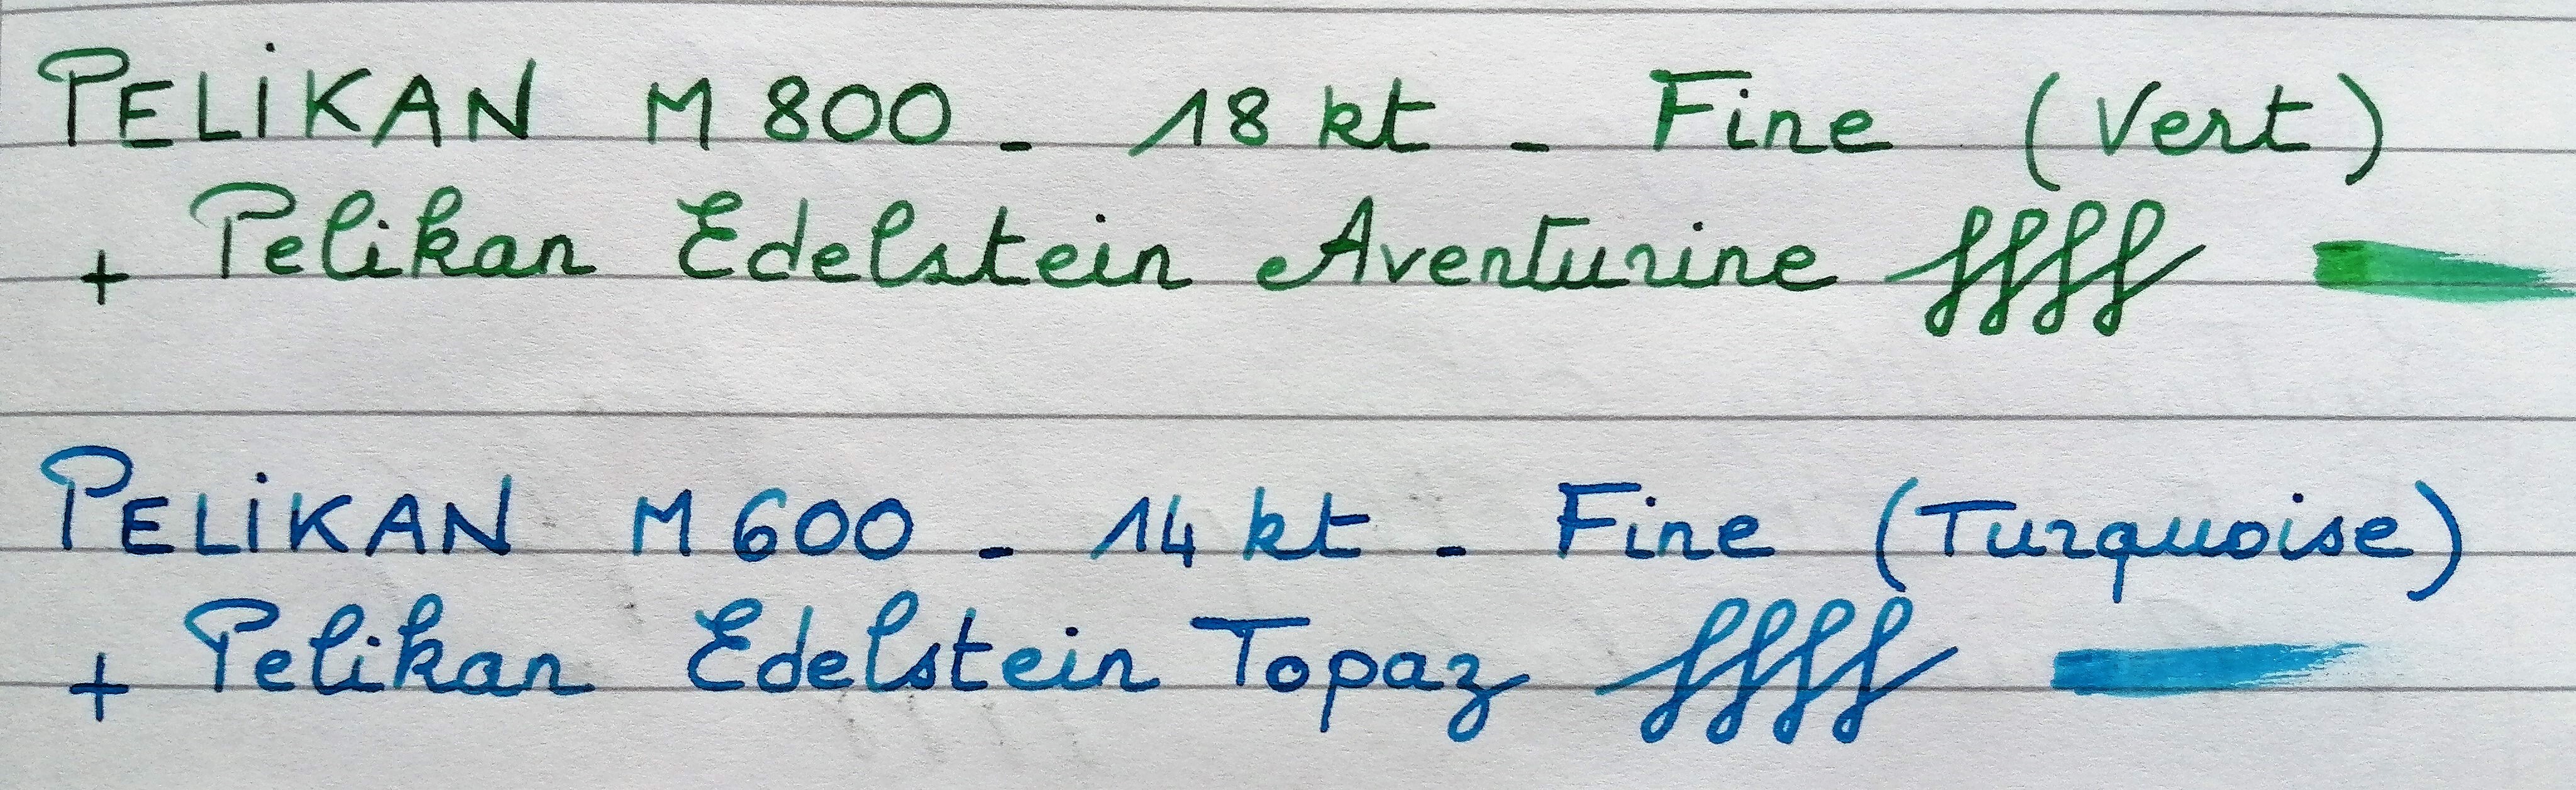 PELiKAN M 800 - 18 kt - Fine (Vert)
+ Pelikan Edelstein Aventurine
PELiKAN M 600 - 14 kt - Fine (Turquoise)
+ Pelikan Edelstein Topaz